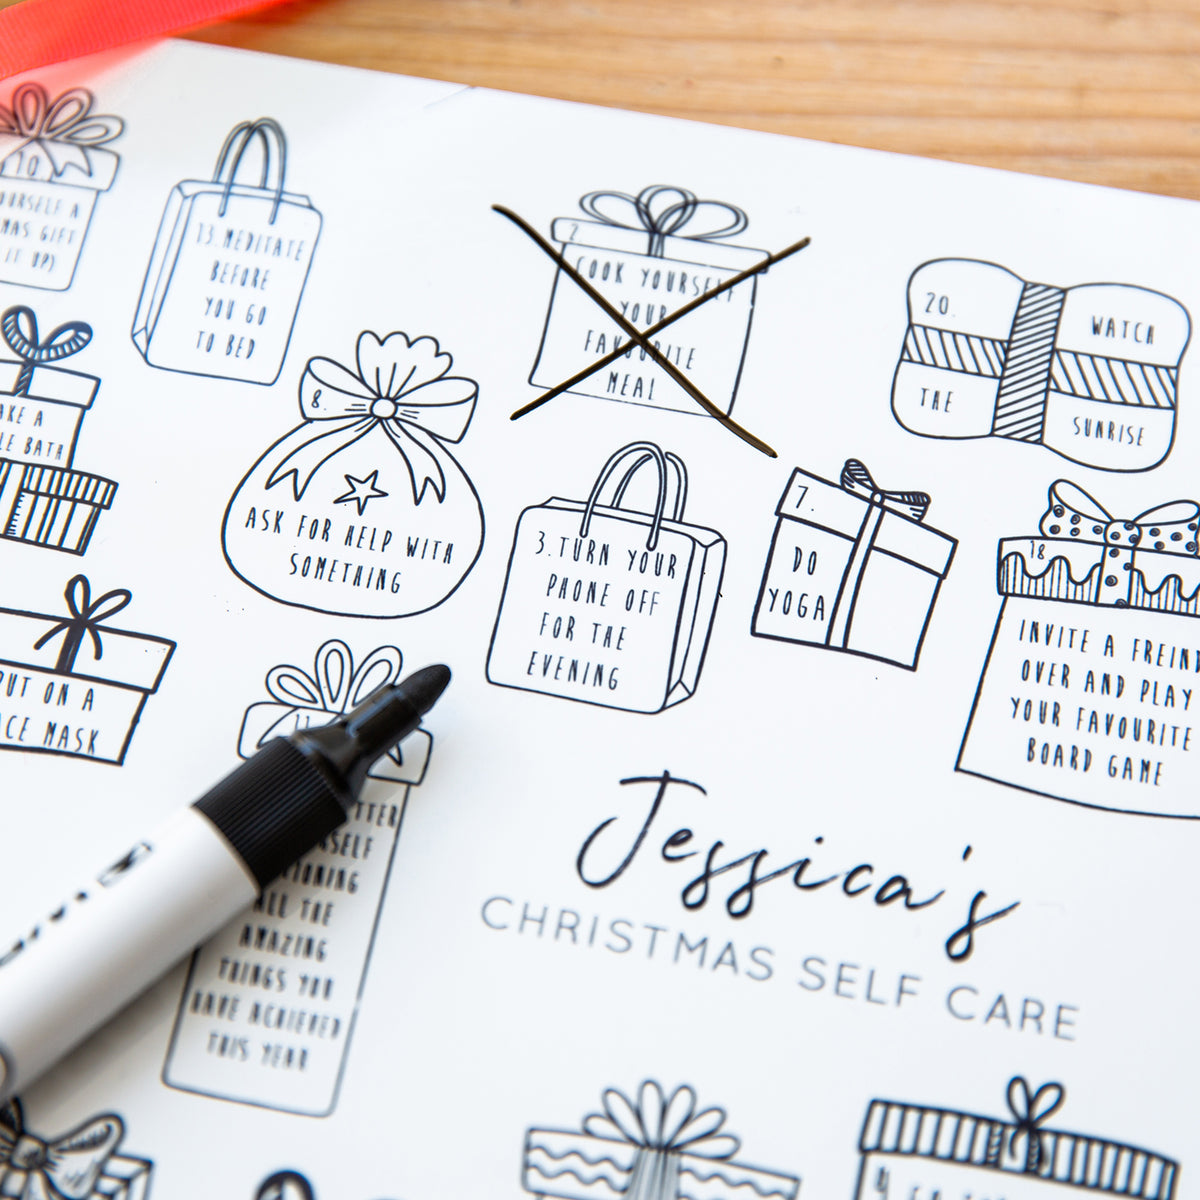 10.
OURSELF A
MAS GIFT
IT UP)
13. MEDITATE
BEFORE
YOU GO
TO BED
2.
COOK YOURSELF
YOUR
FAVOURITE
MEAL
20.
WATCH
THE
SUNRISE
AKE A
LE BATH
8.
ASK FOR HELP WITH
SOMETHING
3. TURN YOUR
PHONE OFF
FOR THE
EVENING
7.
DO
YOGA
18
INVITE A FREIND
OVER AND PLAY
YOUR FAVOURITE
BOARD GAME
PUT ON A
ACE MASK
11
TTER
RSELF
TIONING
ALL THE
AMAZING
THINGS YOU
HAVE ACHIEVED
THIS YEAR
Jessica's
CHRISTMAS SELF CARE